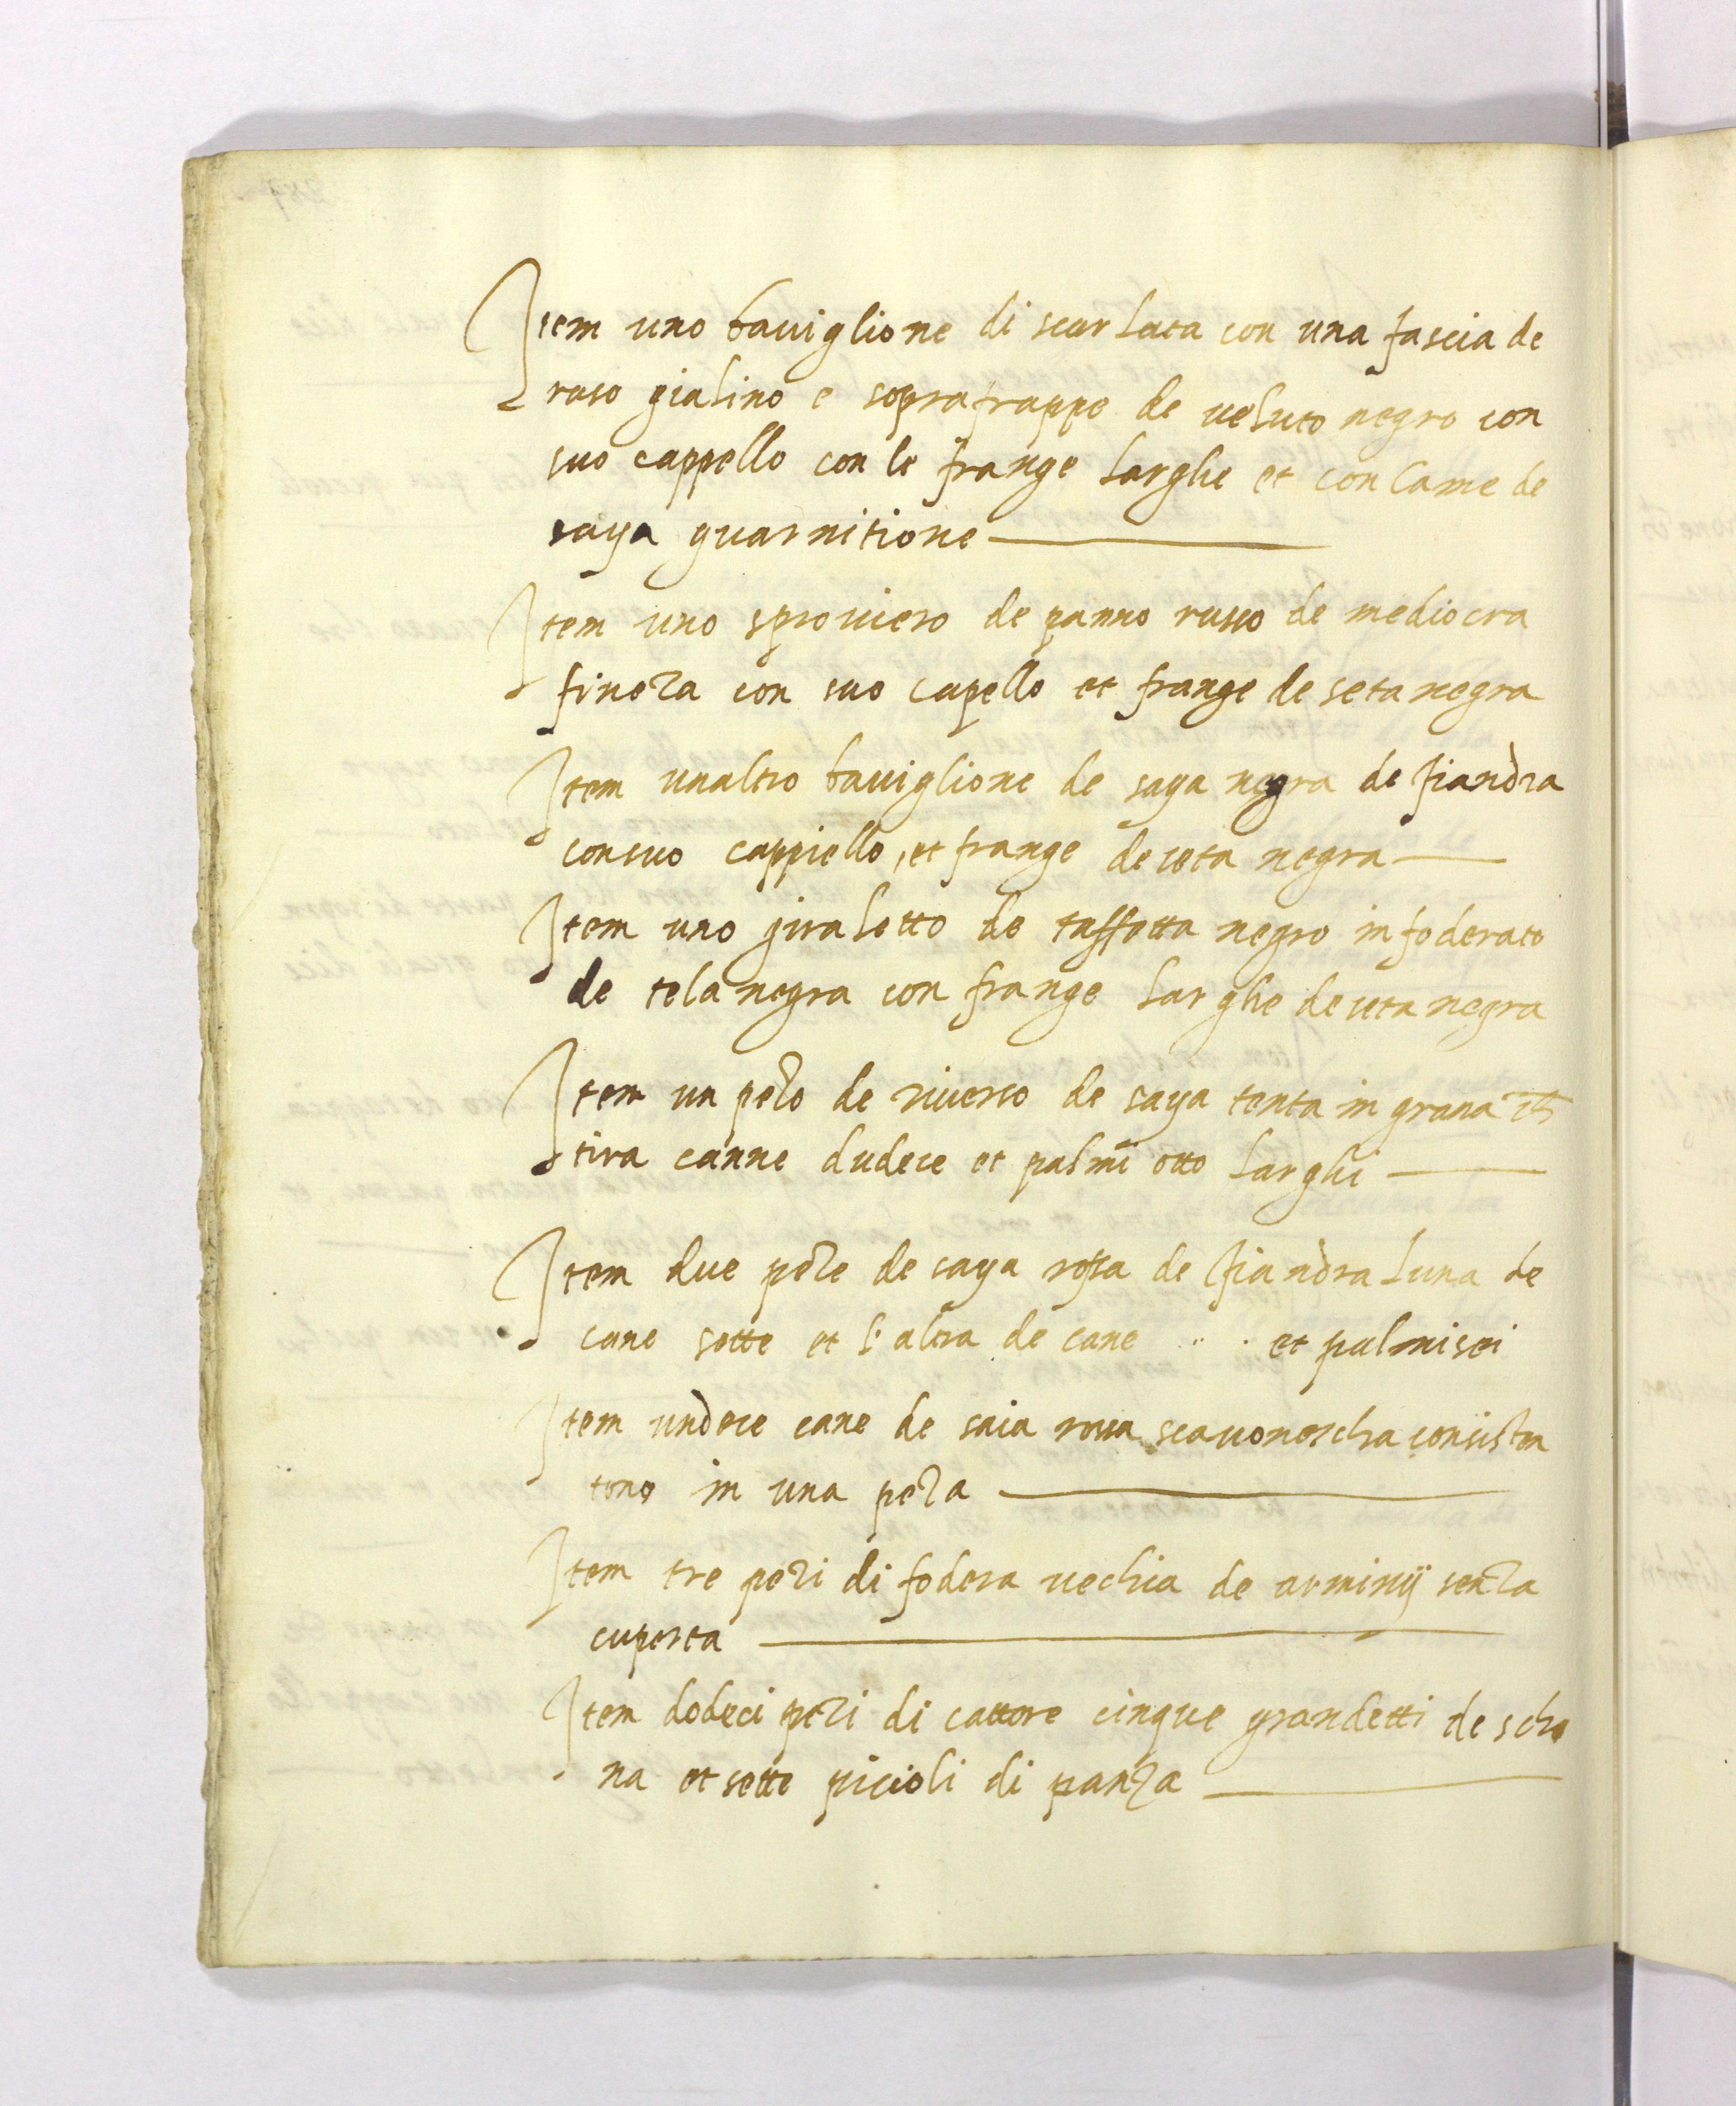 Item uno paviglione di scarlata con una fascia de
raso gialino e soprafrappe de veluto negro con
suo cappello con le frange larghe et con lame de
saya guarnitione
Item uno sproviero de panno russo de mediocra
fineza con suo capello et frange de seta negra
Item unaltro paviglione de saya negra de fiandra
con suo cappiello, et frange de seta negra
Item uno giraletto de taffetta negro infoderato
de tela negra con frange larghe de seta negra
Item un pezo de riverso de saya tenta in grana
tira canne dudece et palmi otto larghi
Item due peze de saya rossa de fiandra luna de
cane sette et l'altra de cane .. . et palmi sei
Item undece cane de saia rossa scavonescha consisten
tono in una peza
Item tre pezi di fodera vechia de arminij senza
cuperta
Item dodeci pezi di cattore cinque grandetti de sche
na et sette picioli di panza